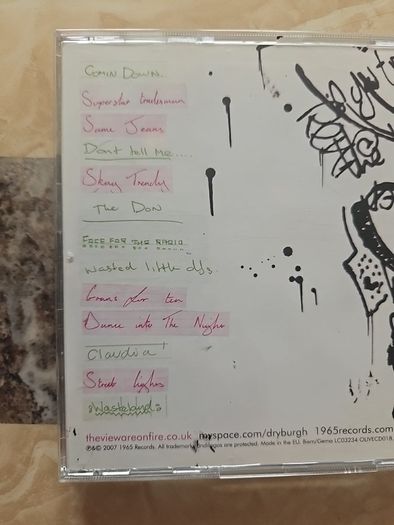 Comin Down.
Superstar tradesman
Same Jeans
Don't tell me....
Skag Trendy
The Don
FACE FOR THE RADIO
wasted little djs.
Grans for tea
Dance into The Night
Claudia!
Street lights
Wasteland
theviewareonfire.co.uk myspace.com/dryburgh 1965records.com
℗&© 2007 1965 Records. All trademarks and logos are protected. Made in the EU. Biem/Gema LC03234 OLIVECD018